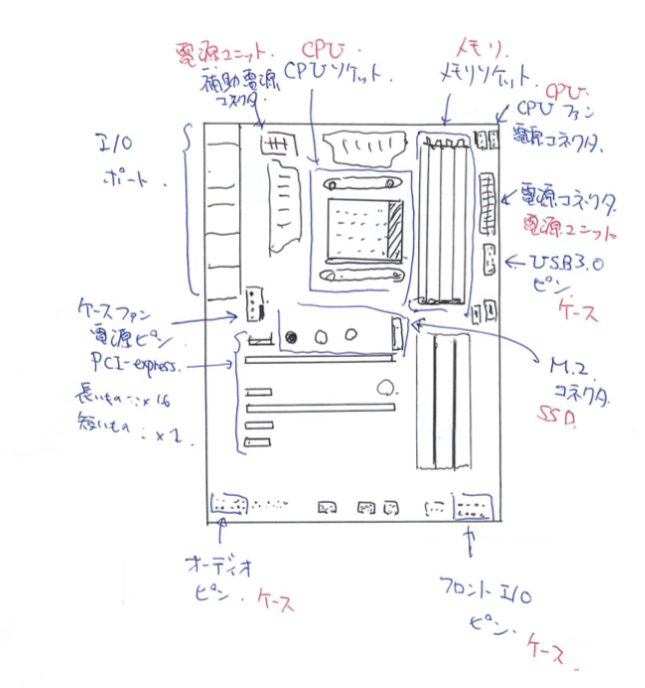 電源ユニット.
補助電源
コネクタ
CPU
CPUソケット.
メモリ.
メモリソケット.
CPU.
CPU ファン
電源コネクタ.
I/O
ポート.
電源コネクタ.
電源ユニット
USB3.0
ピン.
ケース
ケースファン
電源ピン.
PCI-express.
長いもの:×16
短いもの:×1.
M.2.
コネクタ
SSD.
オーディオ
ピン. ケース
フロントI/O
ピン. ケース.